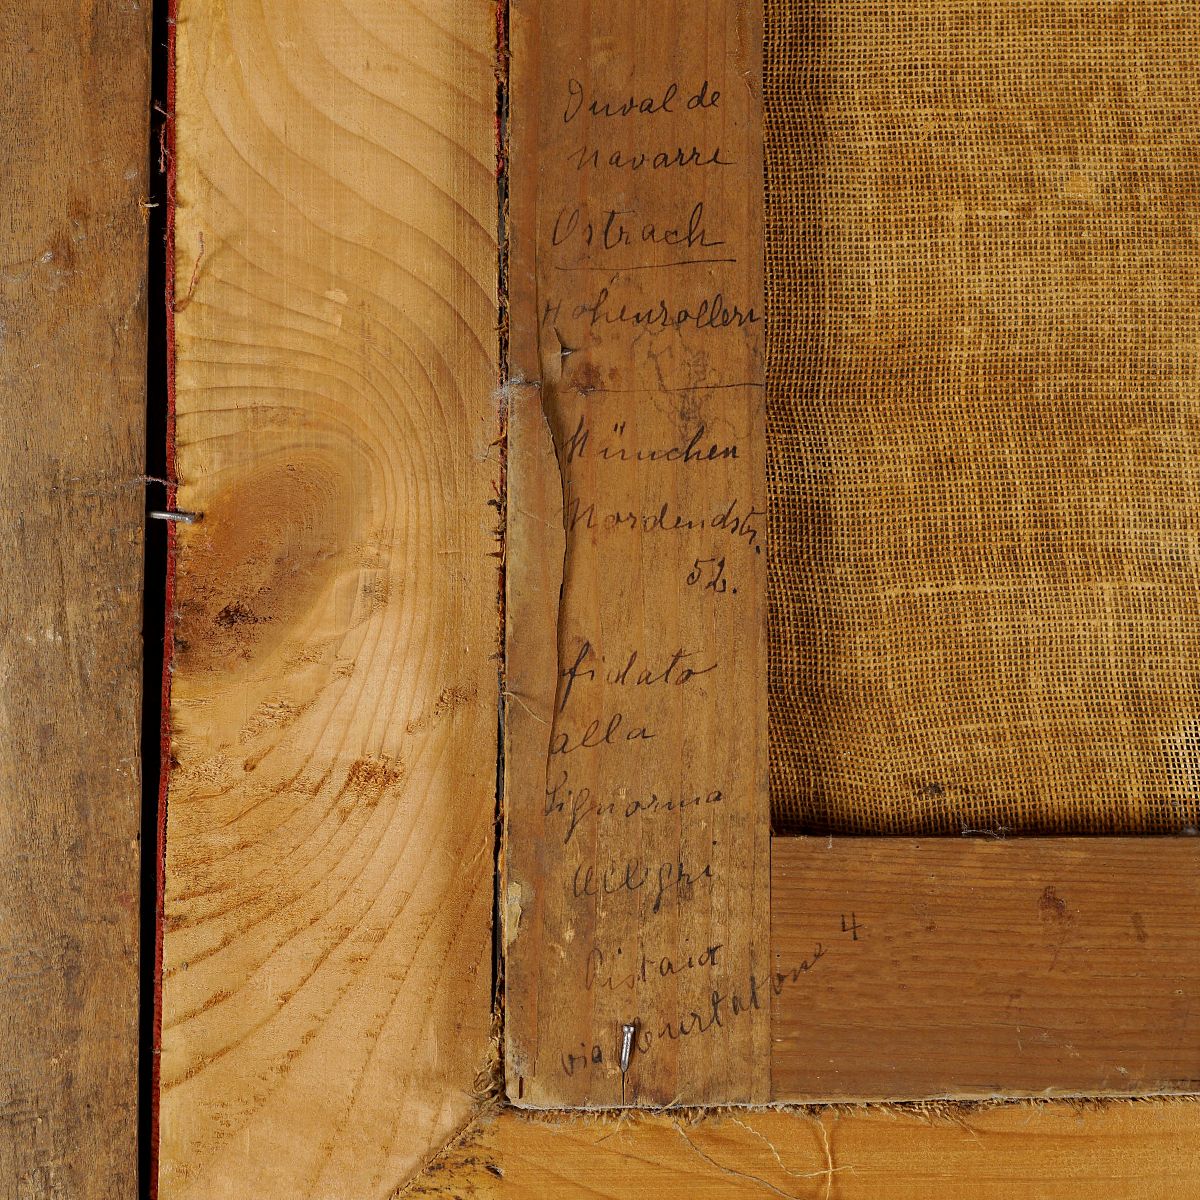 Duval de
Navarre
Ostrach
Hohenzollern
München
Nordendstr.
52.
fidato
alla
Signorina
Allegri
Pistaia
via Curtatone 4